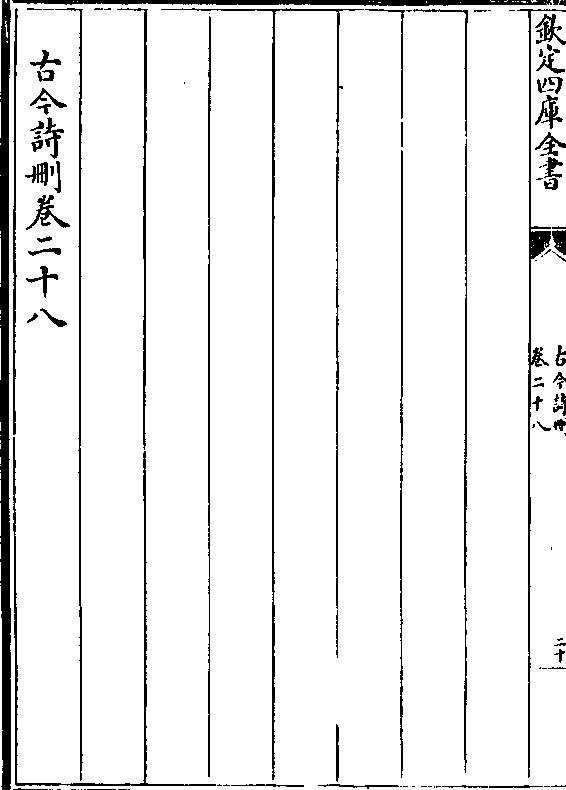 欽定四庫全書
古今詩刪
卷二十八
二十
古今詩刪卷二十八